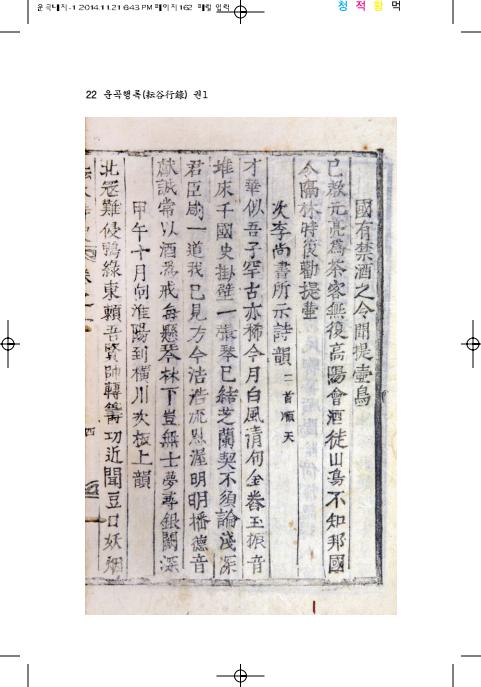 운곡내지-1 2014.11.21 6:43 PM 페이지162 매킨 입력
청 적 황 먹
22 운곡행록(耘谷行錄) 권1
國有禁酒之令聞提壺鳥
已敎元亮爲茶客無復高陽會酒徒山鳥不知邦國
令隔林時復勸提壺
次李尙書所示詩韻 二首順天
才華似吾子罕古亦稀今月白風淸句金卷玉振音
堆床千國史掛壁一張琴已結芝蘭契不須論淺深
君臣咸一道我已見方今浩浩流恩渥明明播德音
獻誠常以酒爲戒每懸琴林下豈無士夢尋銀闕深
甲午十月向淮陽到橫川次板上韻
北寇難侵鴨綠東賴吾賢帥轉籌功近聞豆口妖烟
四